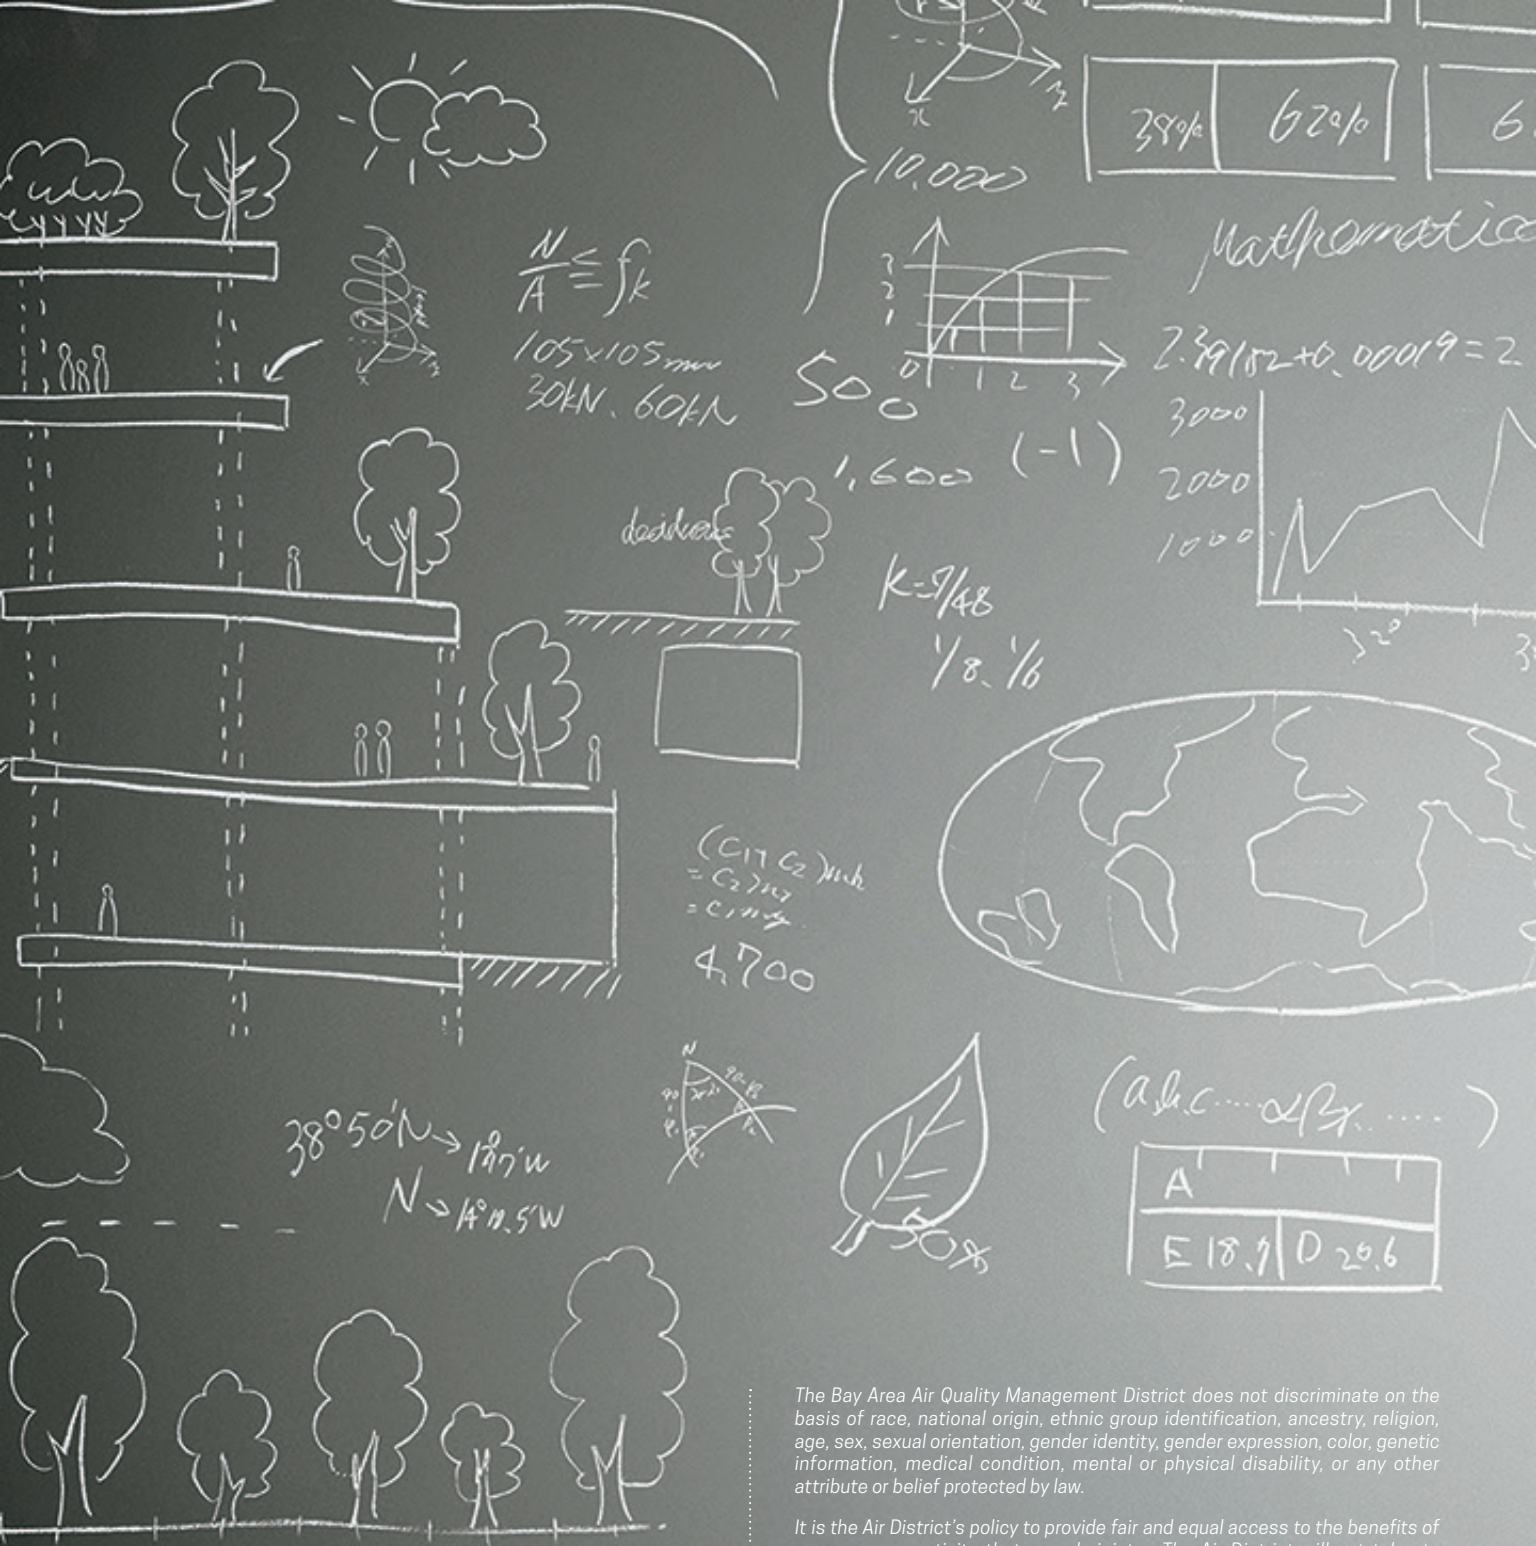 38% 62% 6
10,000
Mathematics
N/A ≦ fk
3
2
1
0 1 2 3
105×105mm
30kN. 60kN
500
2.39182+0.00019=2.
3000
2000
1000
32°
1,600 (-1)
deciduous
K=9/48
1/8. 1/6
4,700
N
38°50'N→
N→
50%
(a.b.c..... αβγ. .... )
A
E 18.7 D 20.6
The Bay Area Air Quality Management District does not discriminate on the
basis of race, national origin, ethnic group identification, ancestry, religion,
age, sex, sexual orientation, gender identity, gender expression, color, genetic
information, medical condition, mental or physical disability, or any other
attribute or belief protected by law.
It is the Air District's policy to provide fair and equal access to the benefits of